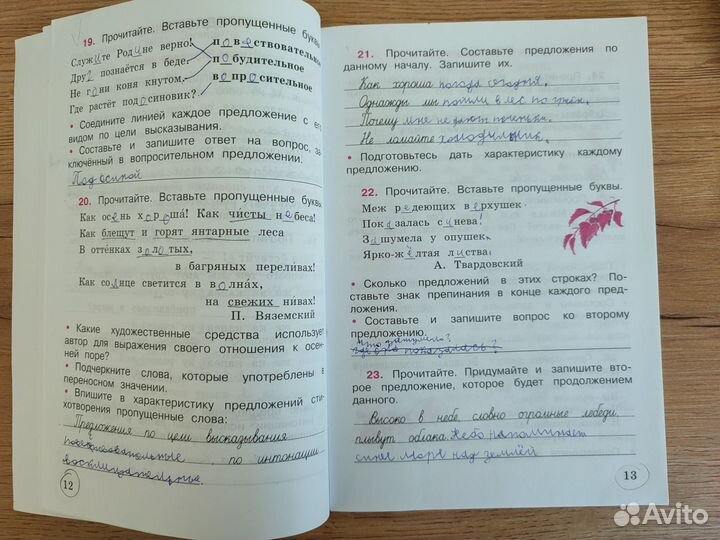 19. Прочитайте. Вставьте пропущенные буквы.
Служите Родине верно! повествовательное
Друг познаётся в беде. побудительное
Не гони коня кнутом. вопросительное
Где растёт подосиновик?
• Соедините линией каждое предложение с его
видом по цели высказывания.
• Составьте и запишите ответ на вопрос, за-
ключённый в вопросительном предложении.
Под осиной
20. Прочитайте. Вставьте пропущенные буквы.
Как осень хороша! Как чисты небеса!
Как блещут и горят янтарные леса
В оттенках золотых,
в багряных переливах!
Как солнце светится в волнах,
на свежих нивах!
П. Вяземский
• Какие художественные средства использует
автор для выражения своего отношения к осен-
ней поре?
• Подчеркните слова, которые употреблены в
переносном значении.
• Впишите в характеристику предложений сти-
хотворения пропущенные слова:
Предложения по цели высказывания
повествовательные, по интонации
восклицательные.
12
21. Прочитайте. Составьте предложения по
данному началу. Запишите их.
Как хороша погода сегодня.
Однажды мы пошли в лес по грибы.
Почему мне не дают
Не ломайте холодильник.
• Подготовьтесь дать характеристику каждому
предложению.
22. Прочитайте. Вставьте пропущенные буквы.
Меж редеющих верхушек
Показалась синева!
Зашумела у опушек
Ярко-жёлтая листва.
А. Твардовский
• Сколько предложений в этих строках? По-
ставьте знак препинания в конце каждого пред-
ложения.
• Составьте и запишите вопрос ко второму
предложению.
Что зашумело?
показалась?
23. Прочитайте. Придумайте и запишите вто-
рое предложение, которое будет продолжением
данного.
Высоко в небе, словно огромные лебеди,
плывут облака. Небо напоминает
синее море над землёй
13
Avito